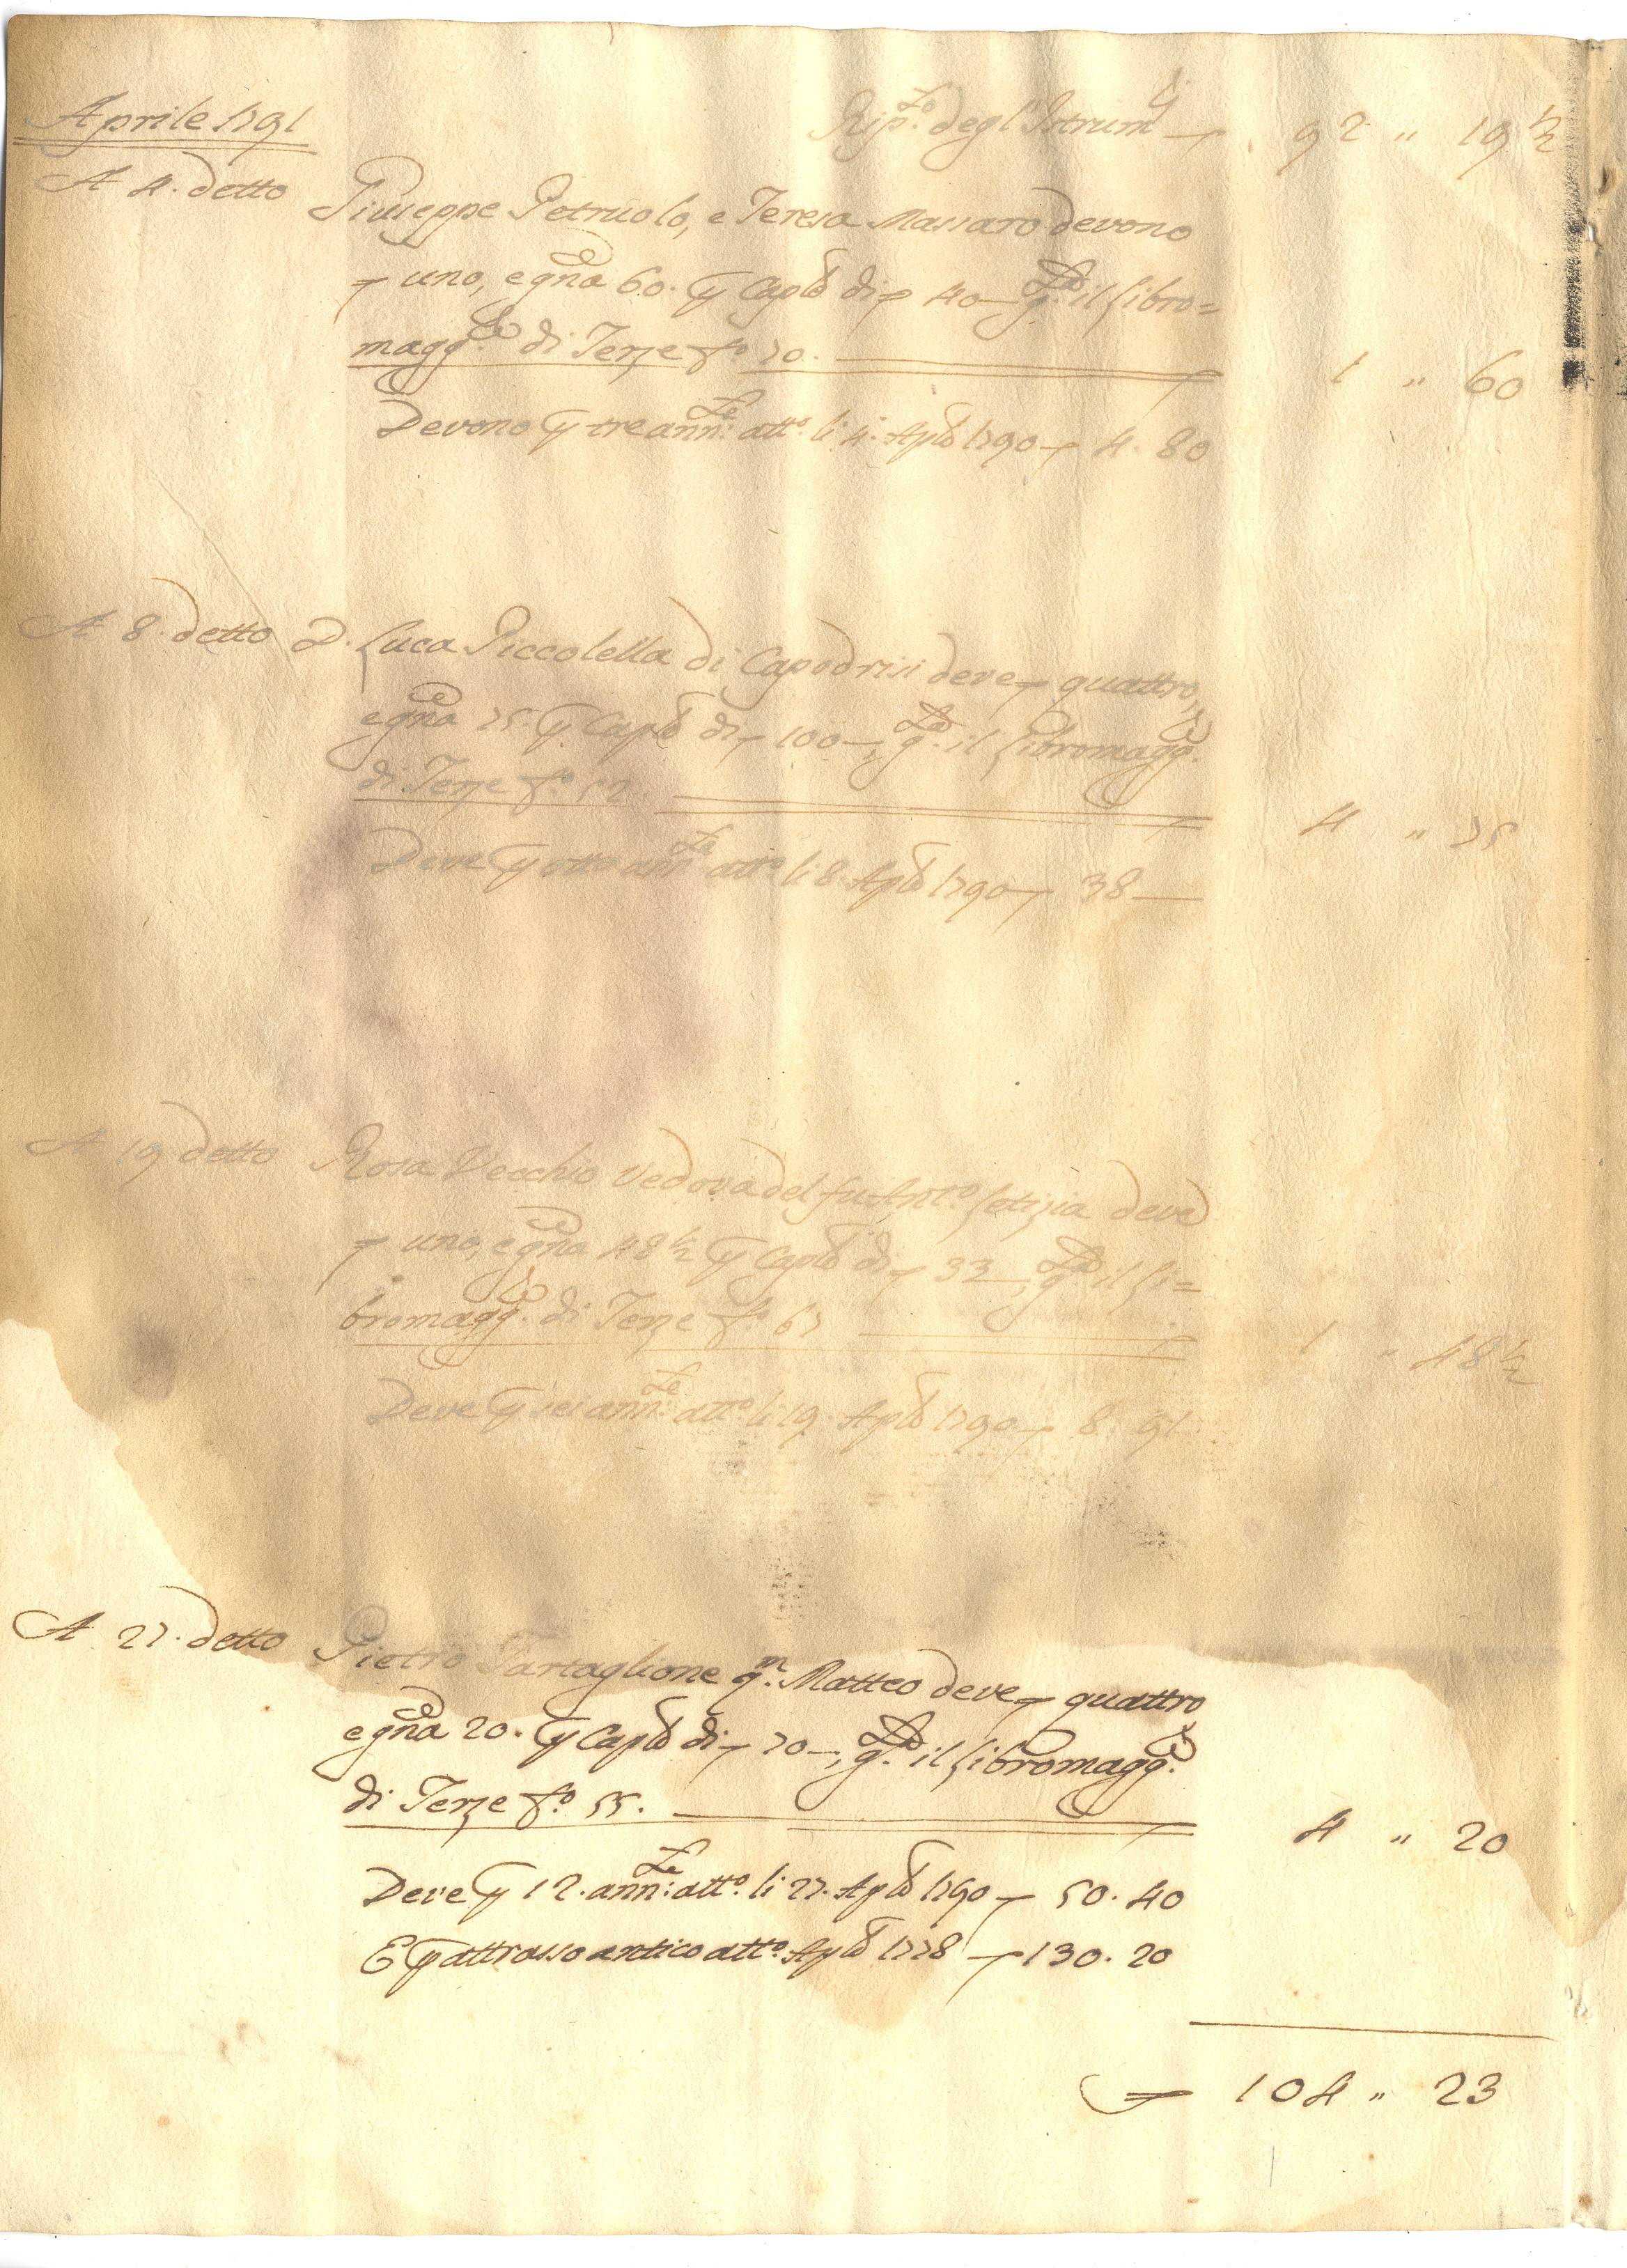 Aprile 1791
Rip.to degl'Istrum.ti — 92 " 19 ½
A 4. detto Giuseppe Petruolo, e Teresa Massaro devono
uno, e gña 60. p Caple di 40 —, g.ta il Libro=
magg.re di Terze f.o 70. 1 " 60
Devono p tre ann.te att.o li 4. Aple 1790 — 4. 80
A 8. detto D. Luca Piccolella di Capodrisi deve quattro,
e gña 75. p Caple di 100 —, g.ta il Libromagg.re
di Terze f.o 52. 4 " 75
Deve p otto ann.te att.o li 8. Aple 1790 — 38 —
A 19 detto Rosa Vecchio Vedova del fu Ant.o Letizia deve
uno, e gña 48 ½ p Caple di 33 —, g.ta il Li=
bromagg.re di Terze f.o 67 1 " 48 ½
Deve p sei ann.te att.o li 19. Aple 1790 — 8. 91
A 27. detto Pietro Tartaglione q.m Matteo deve quattro,
e gña 20. p Caple di 70 —, g.ta il Libromagg.re
di Terze f.o 55. 4 " 20
Deve p 12. ann.te att.o li 27. Aple 1790 — 50. 40
E p attrasso antico att.o Aple 1778 — 130. 20
104 " 23